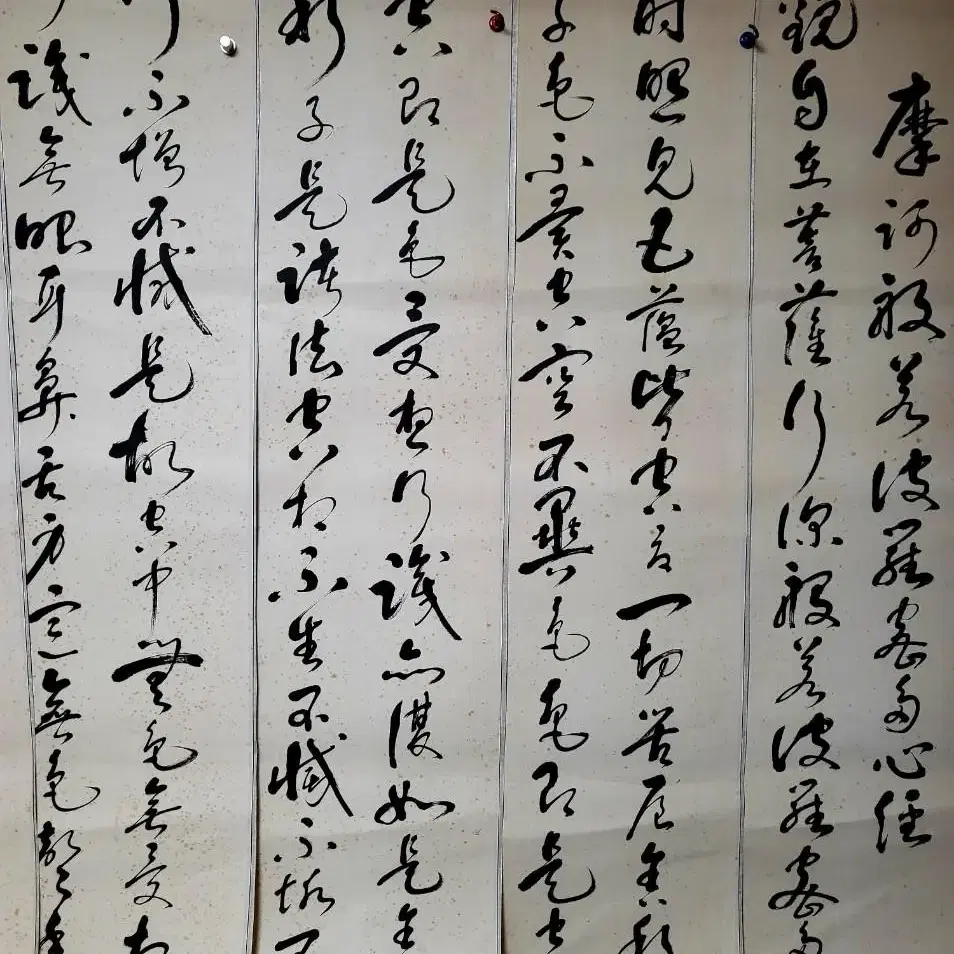 摩訶般若波羅蜜多心經
觀自在菩薩行深般若波羅蜜多
時照見五蘊皆空度一切苦厄舍利
子色不異空空不異色色即是空
空即是色受想行識亦復如是舍
利子是諸法空相不生不滅不垢不
不增不減是故空中無色無受想
識無眼耳鼻舌身意無色聲香